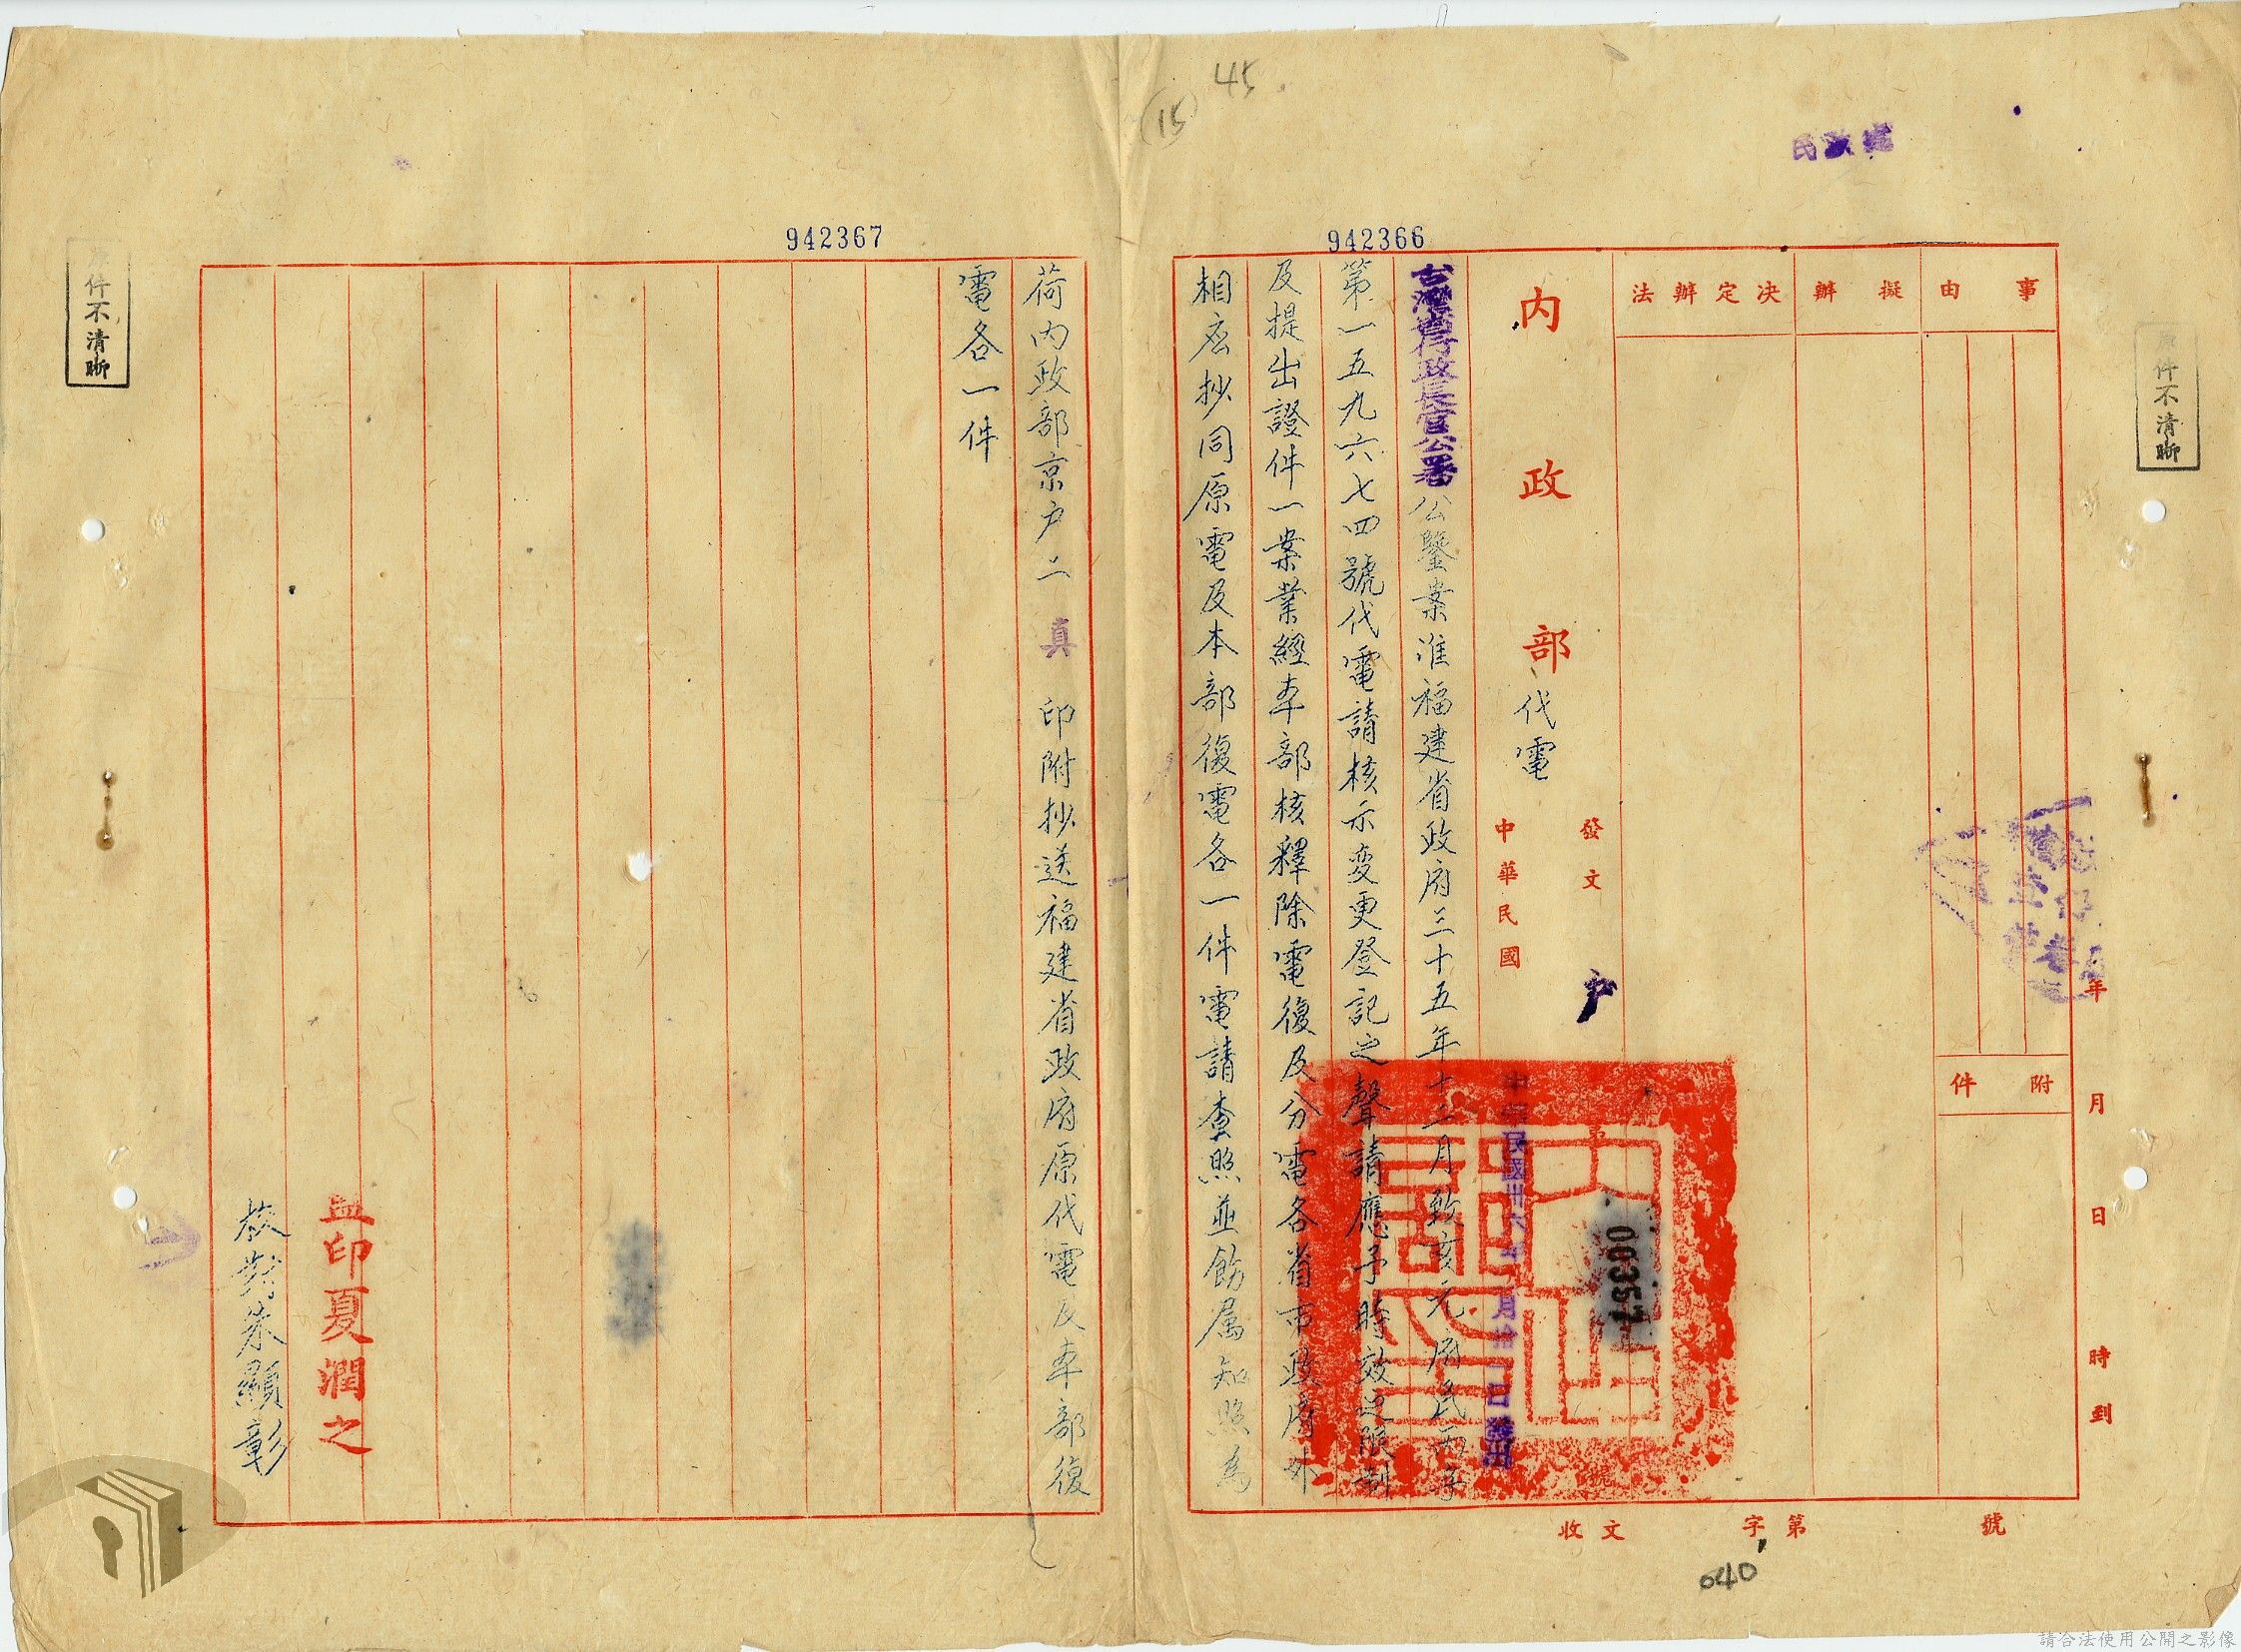 45
15
民政處
942366
942367
原件不清晰
原件不清晰
事由
擬辦
決定辦法
附件
年月日時到
內政部代電
發文
戶
00357
號
中華民國
中華民國卅六年 月廿 日發出
台灣省行政長官公署公鑒案准福建省政府三十五年十二月致亥元府民丙字
第一五九六七四號代電請核示变更登記之聲請應予時效之限制
及提出證件一案業經本部核釋除電復及分電各省市政府外
相应抄同原電及本部復電各一件電請查照並飭属知照為
荷內政部京戶二真印附抄送福建省政府原代電及本部復
電各一件
監印夏潤之
校對朱顯彰
收文 字第 號
040
請合法使用公開之影像